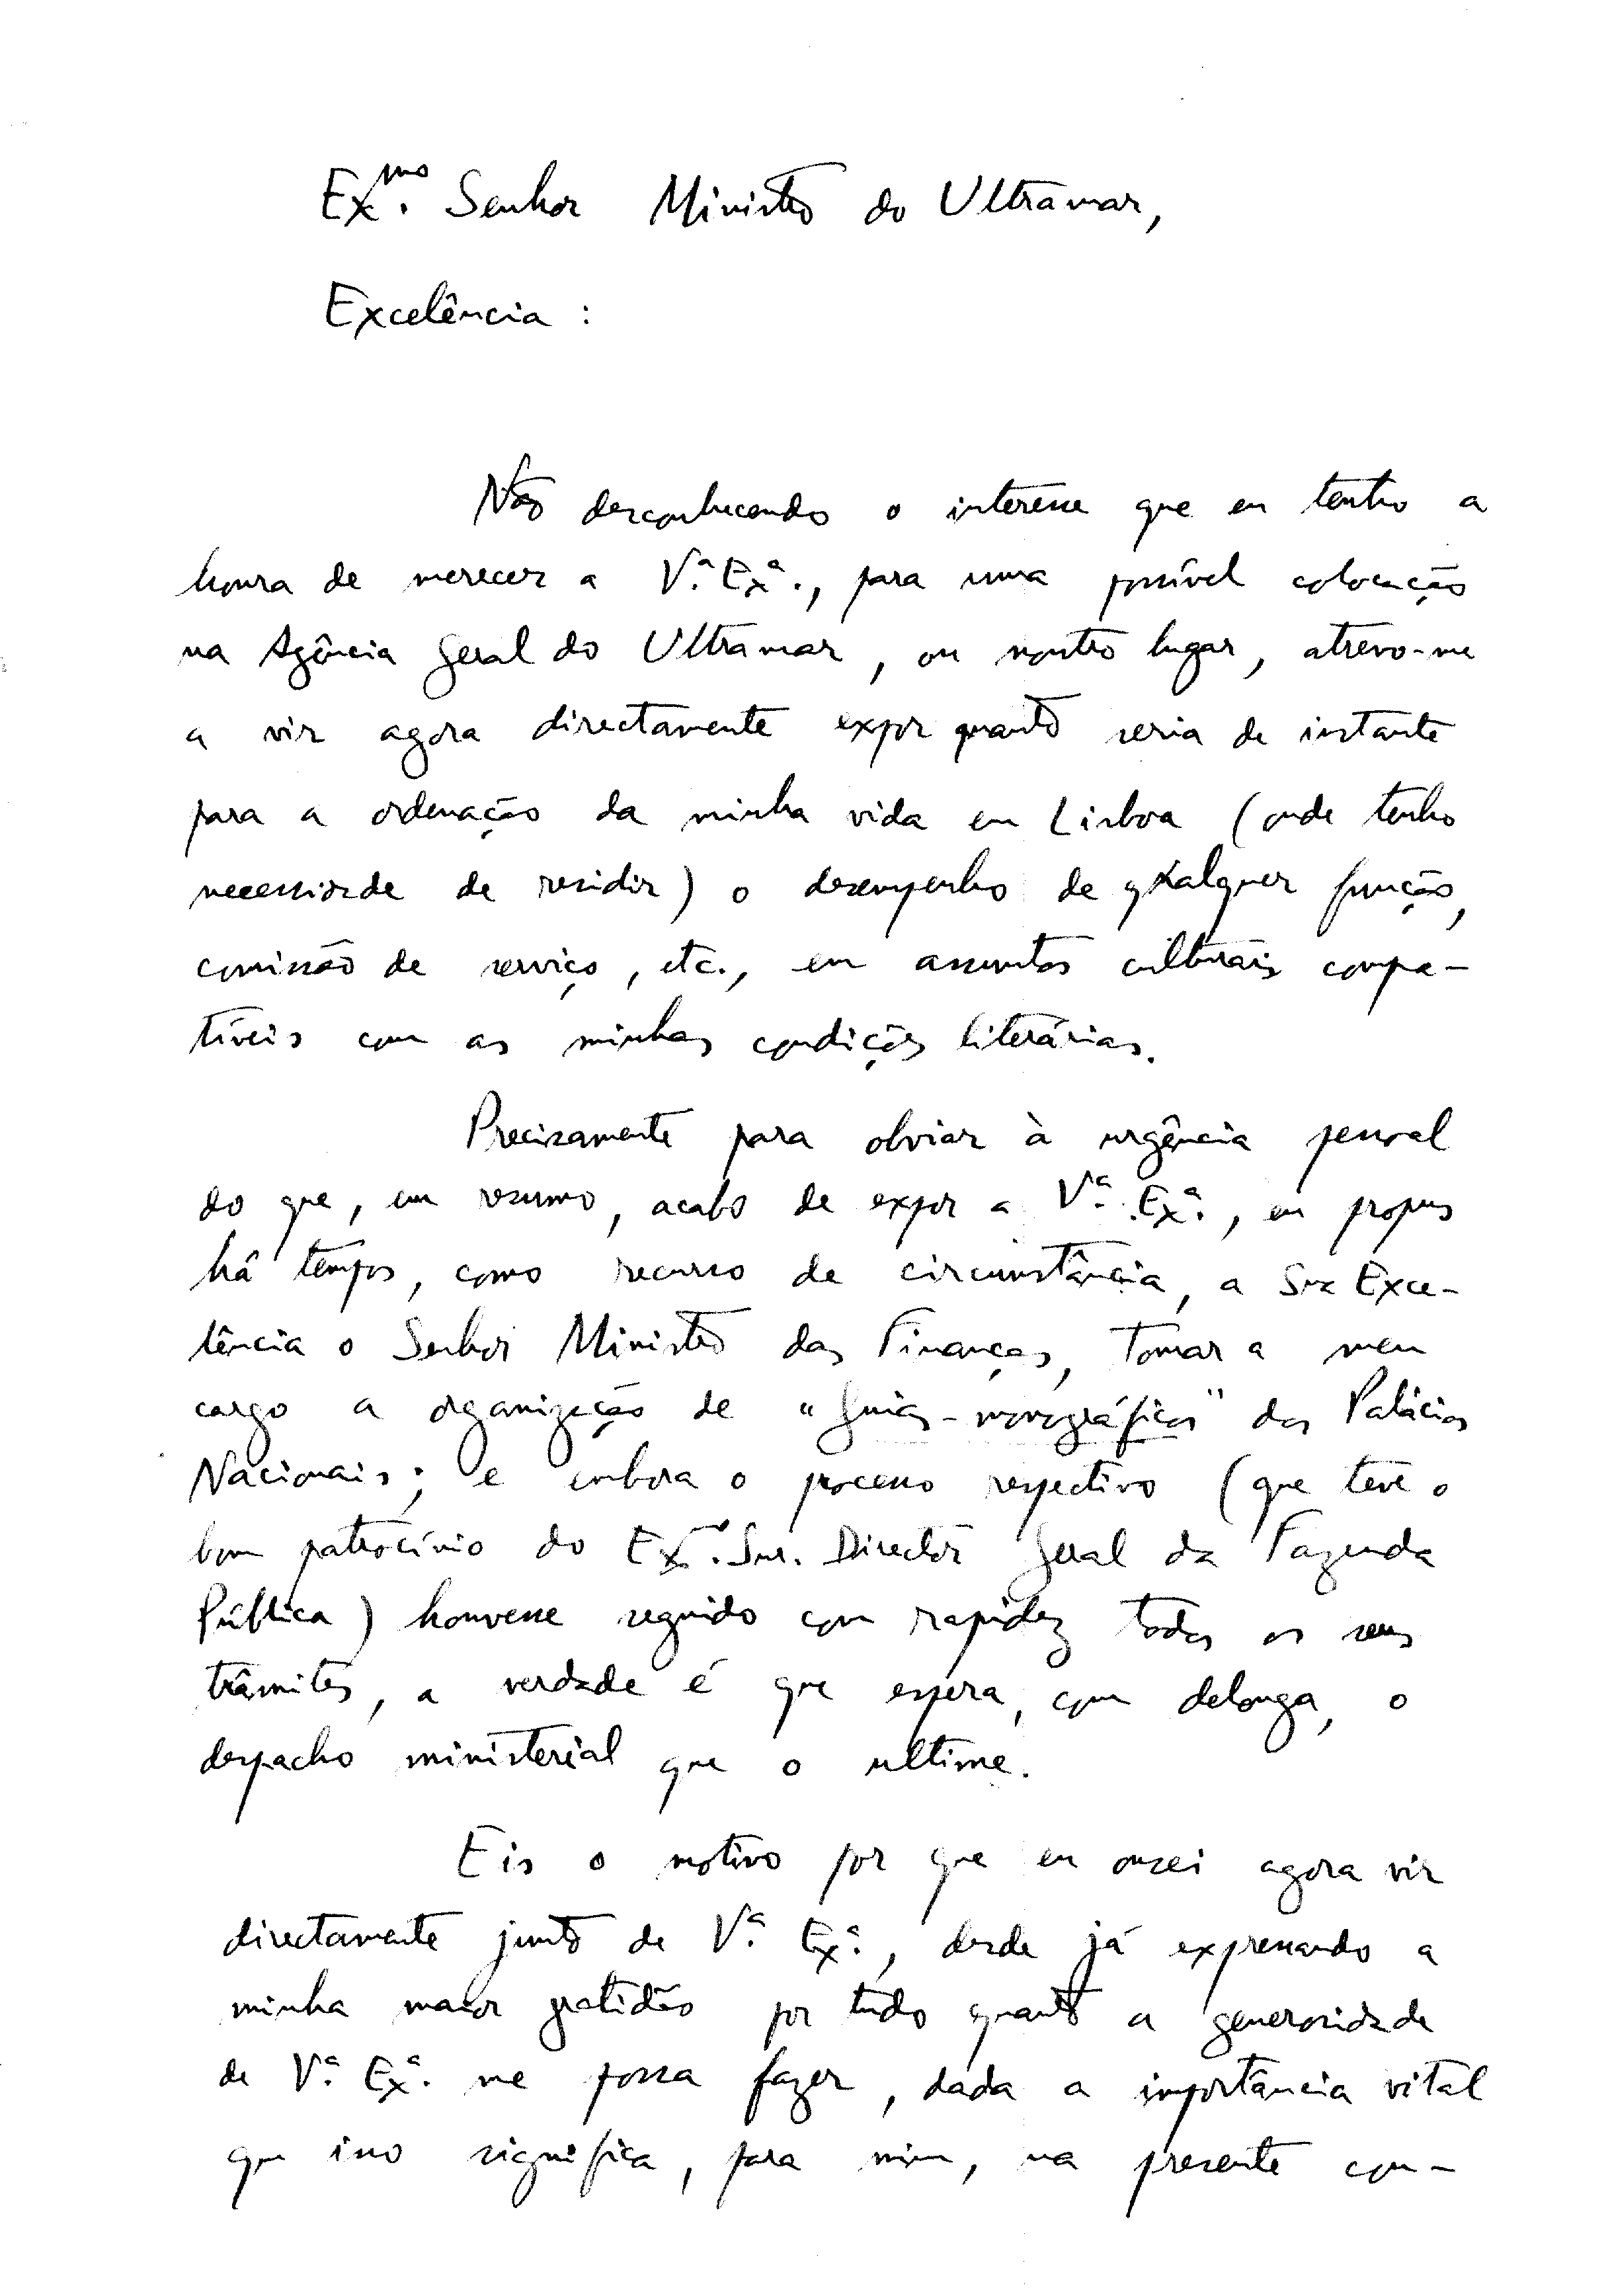 Ex.mo Senhor Ministro do Ultramar,
Excelência :
Não desconhecendo o interesse que eu tenho a
honra de merecer a V.ª Ex.ª., para uma possível colocação
na Agência Geral do Ultramar, ou noutro lugar, atrevo-me
a vir agora directamente expor quanto seria de instante
para a ordenação da minha vida em Lisboa (onde tenho
necessidade de residir) o desempenho de qualquer função,
comissão de serviço, etc., em assuntos culturais compa-
tíveis com as minhas condições literárias.
Precisamente para obviar à urgência pessoal
do que, em resumo, acabo de expor a V.ª Ex.ª, eu propus
há tempos, como recurso de circunstância, a Sua Exce-
lência o Senhor Ministro das Finanças, tomar a meu
cargo a organização de "Guias-monográficos" dos Palácios
Nacionais; e embora o processo respectivo (que teve o
bom patrocínio do Ex.mo Snr. Director Geral da Fazenda
Pública) houvesse seguido com rapidez todos os seus
trâmites, a verdade é que espera, com delonga, o
despacho ministerial que o ultime.
Eis o motivo por que eu ousei agora vir
directamente junto de V.ª Ex.ª, desde já expressando a
minha maior gratidão por tudo quanto a generosidade
de V.ª Ex.ª me possa fazer, dada a importância vital
que isso significa, para mim, na presente con-